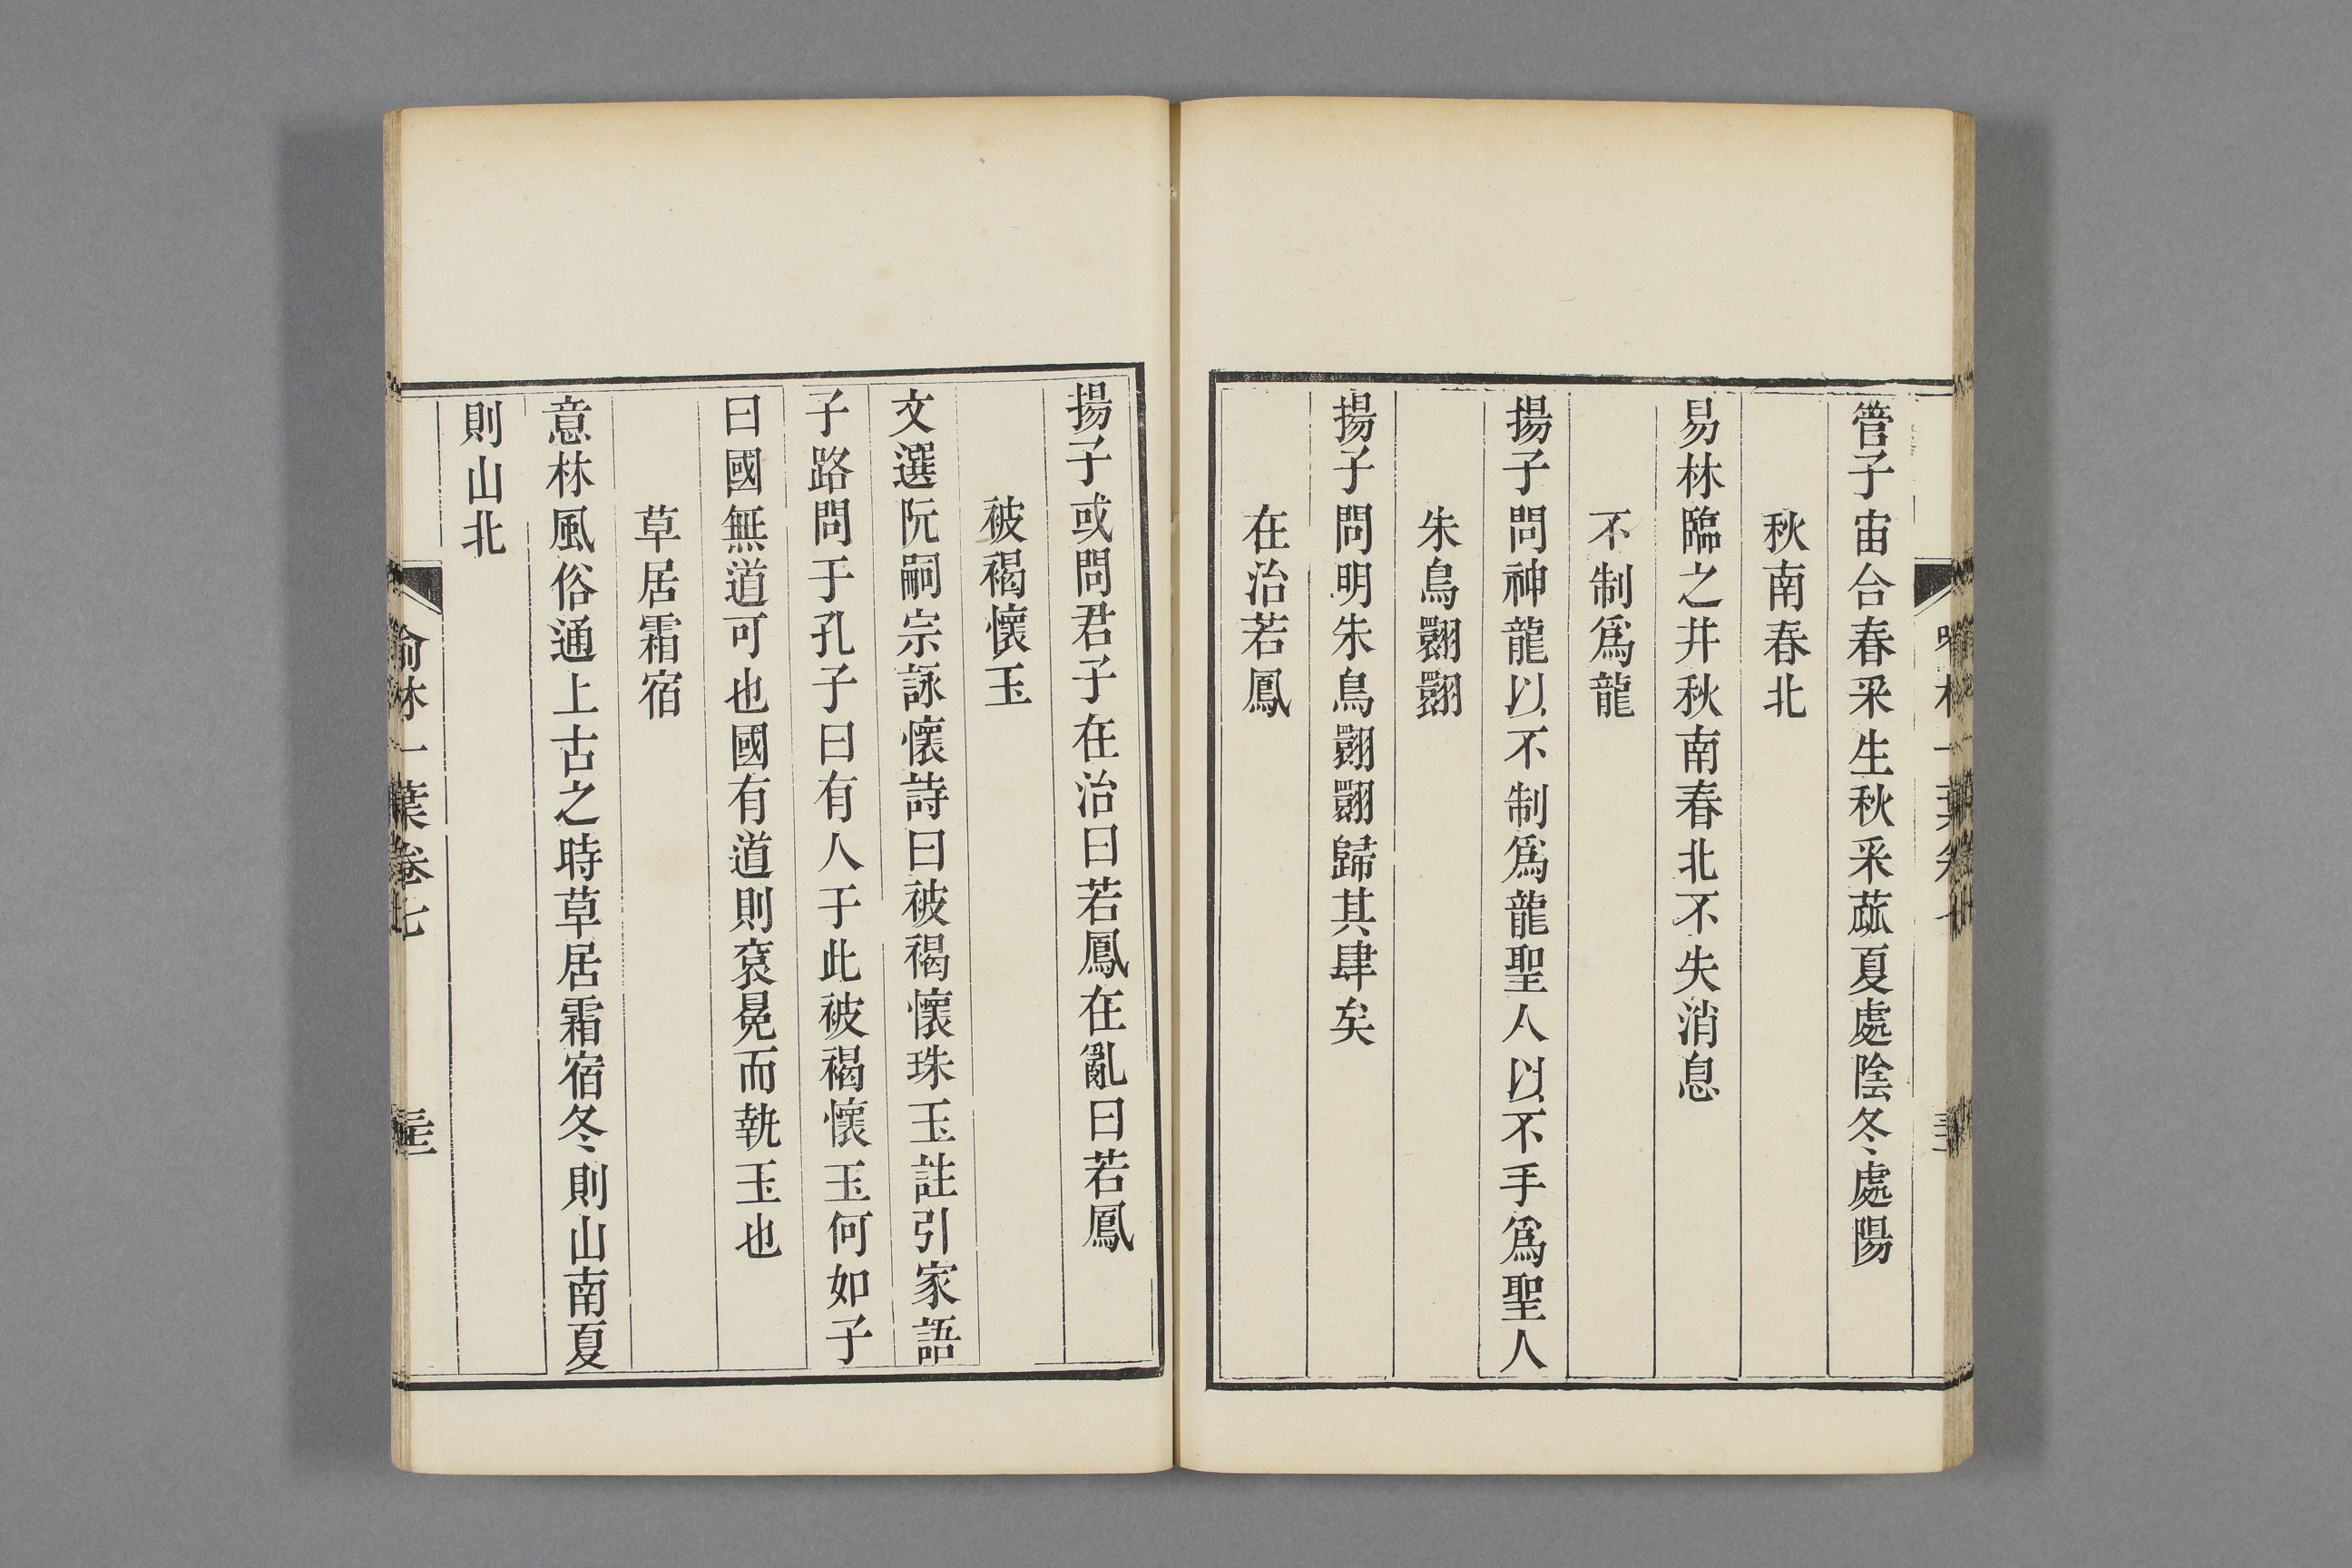 管子宙合春采生秋采蓏夏處陰冬處陽
秋南春北
易林臨之井秋南春北不失消息
不制爲龍
揚子問神龍以不制爲龍聖人以不手爲聖人
朱鳥翾翾
揚子問明朱鳥翾翾歸其肆矣
在治若鳳
揚子或問君子在治曰若鳳在亂曰若鳳
被褐懷玉
文選阮嗣宗詠懷詩曰被褐懷珠玉註引家語
子路問于孔子曰有人于此被褐懷玉何如子
曰國無道可也國有道則袞冕而執玉也
草居霜宿
意林風俗通上古之時草居霜宿冬則山南夏
則山北
喻林一葉卷七